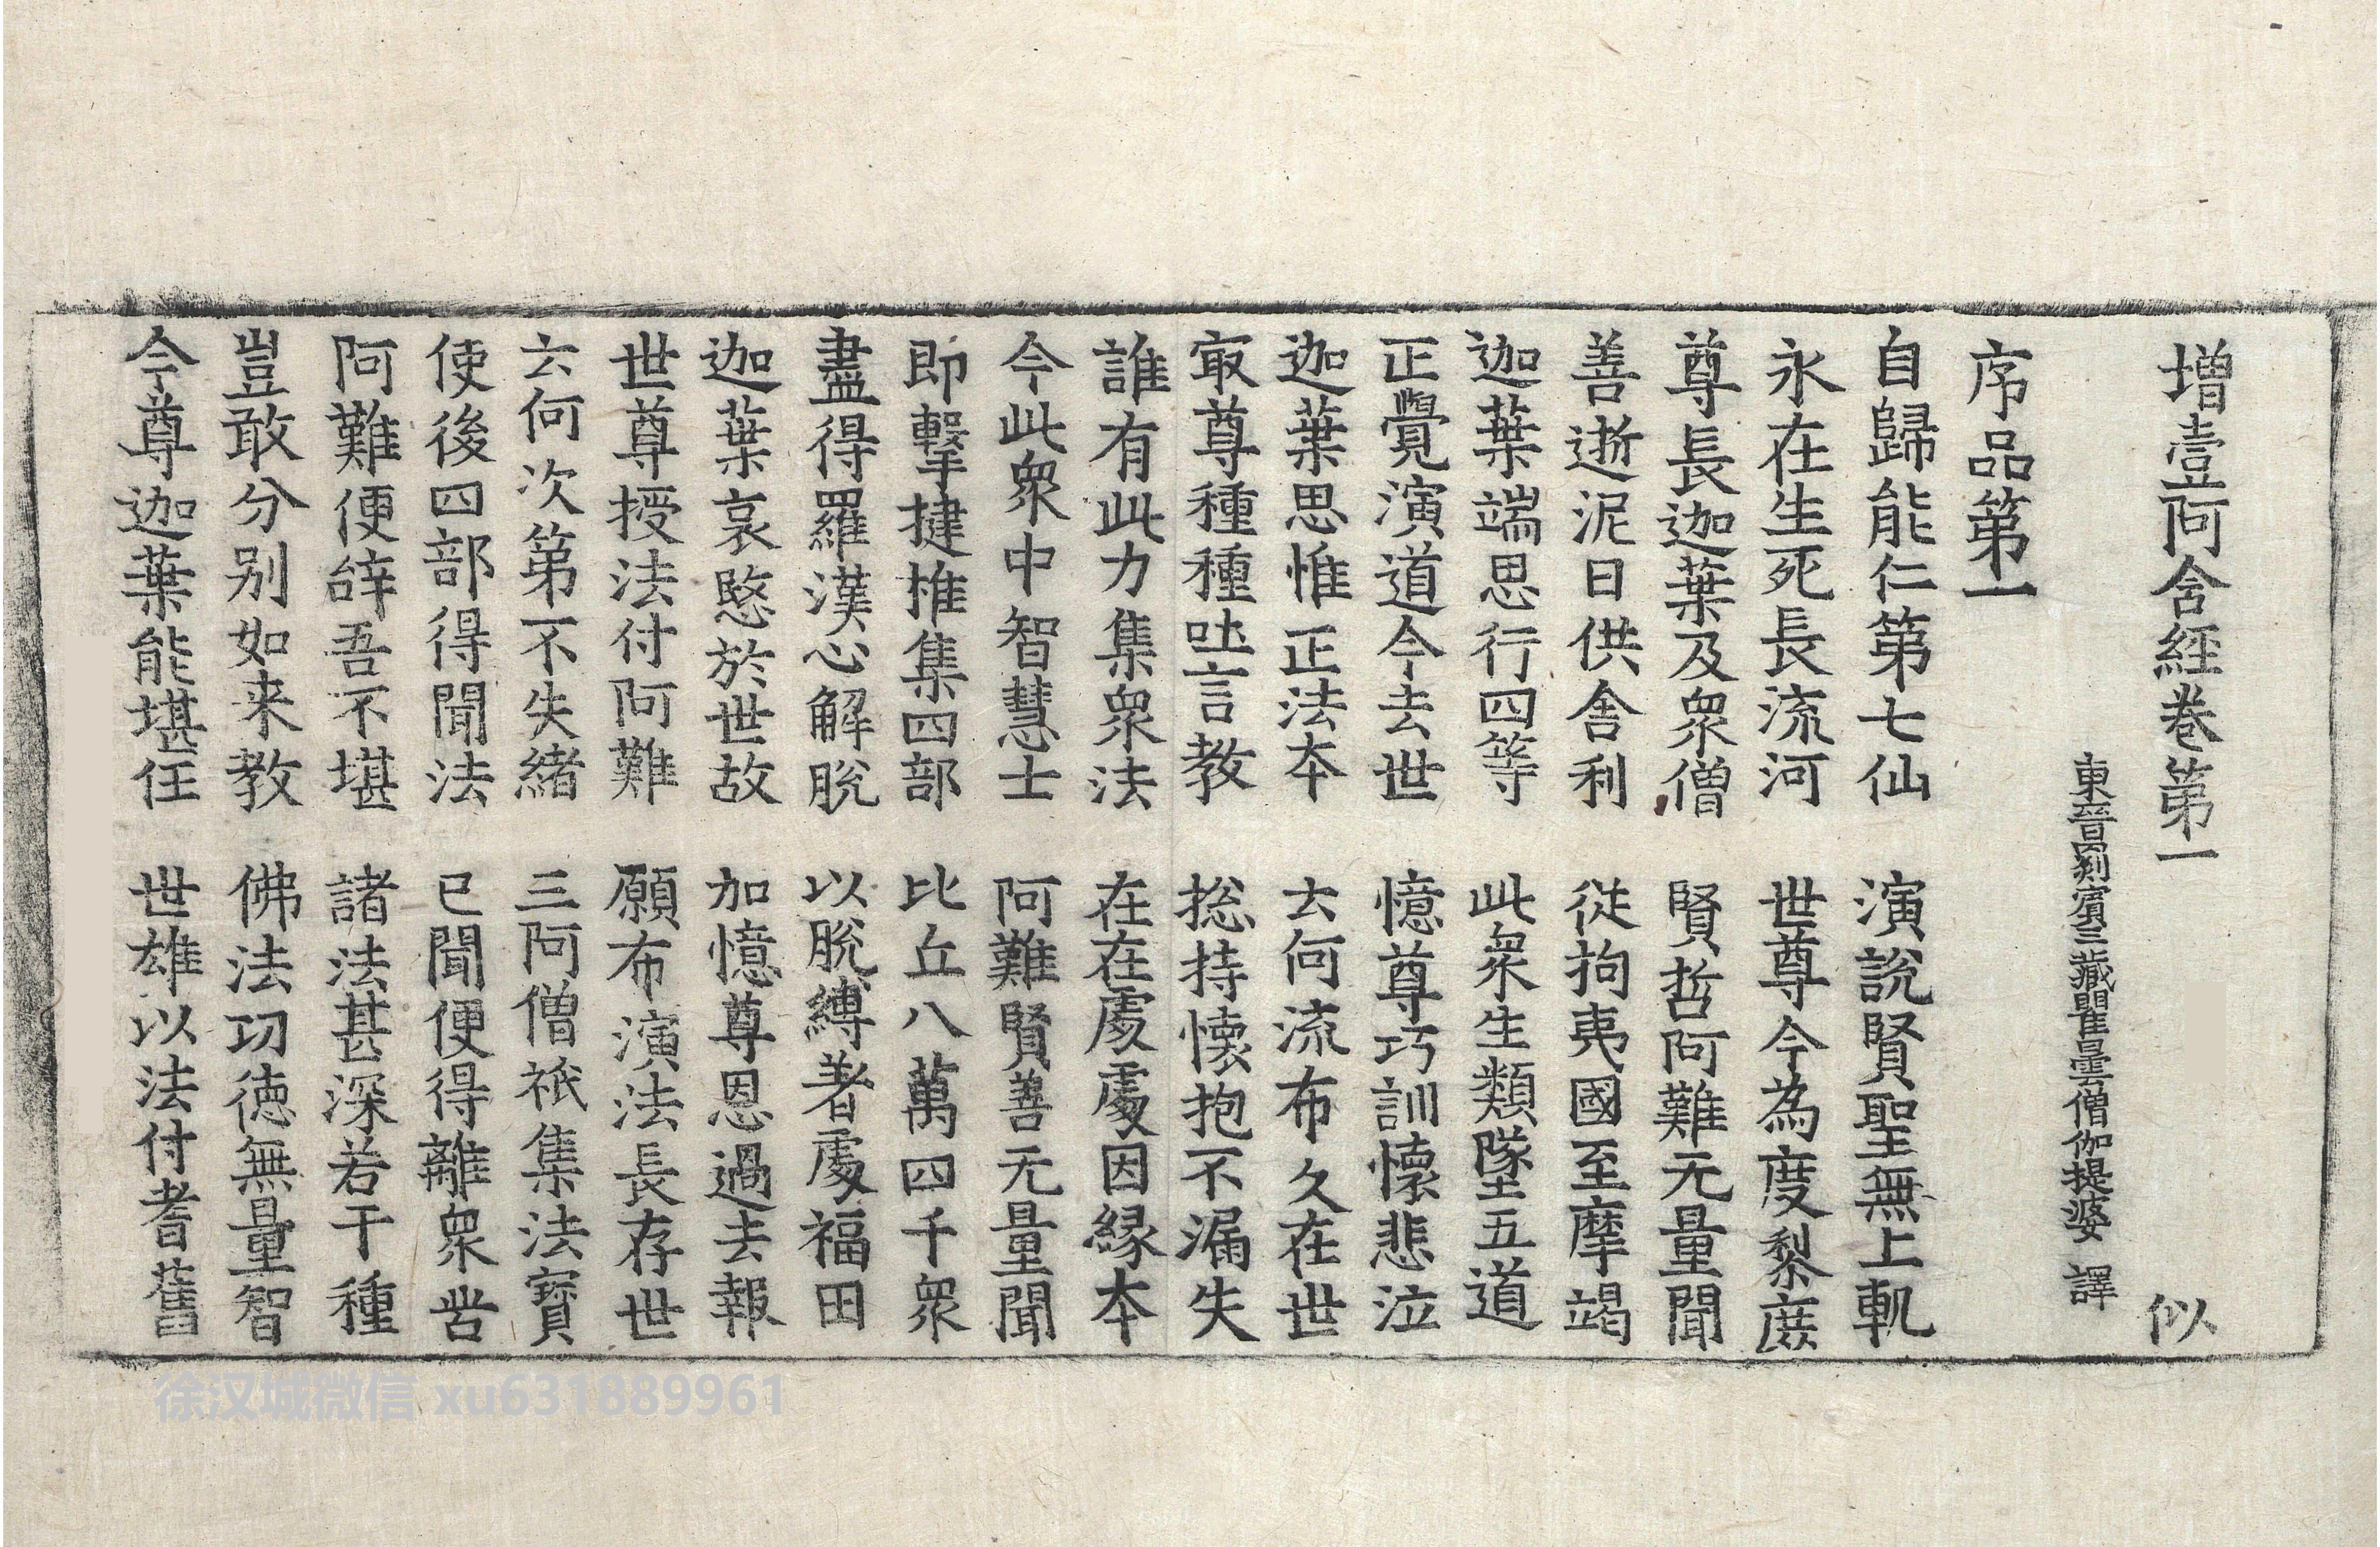 增壹阿含經卷第一 似
東晉罽賓三藏瞿曇僧伽提婆 譯
序品第一
自歸能仁第七仙 演說賢聖無上軌
永在生死長流河 世尊今為度黎庶
尊長迦葉及眾僧 賢哲阿難无量聞
善逝泥曰供舍利 從拘夷國至摩竭
迦葉端思行四等 此眾生類墜五道
正覺演道今去世 憶尊巧訓懷悲泣
迦葉思惟正法本 云何流布久在世
冣尊種種吐言教 捴持懷抱不漏失
誰有此力集眾法 在在處處因緣本
今此眾中智慧士 阿難賢善无量聞
即擊揵椎集四部 比丘八萬四千眾
盡得羅漢心解脫 以脫縛著處福田
迦葉哀愍於世故 加憶尊恩過去報
世尊授法付阿難 願布演法長存世
云何次第不失緒 三阿僧祇集法寶
使後四部得聞法 已聞便得離眾苦
阿難便辝吾不堪 諸法甚深若干種
豈敢分別如来教 佛法功德無量智
今尊迦葉能堪任 世雄以法付耆舊
徐汉城微信 xu631889961